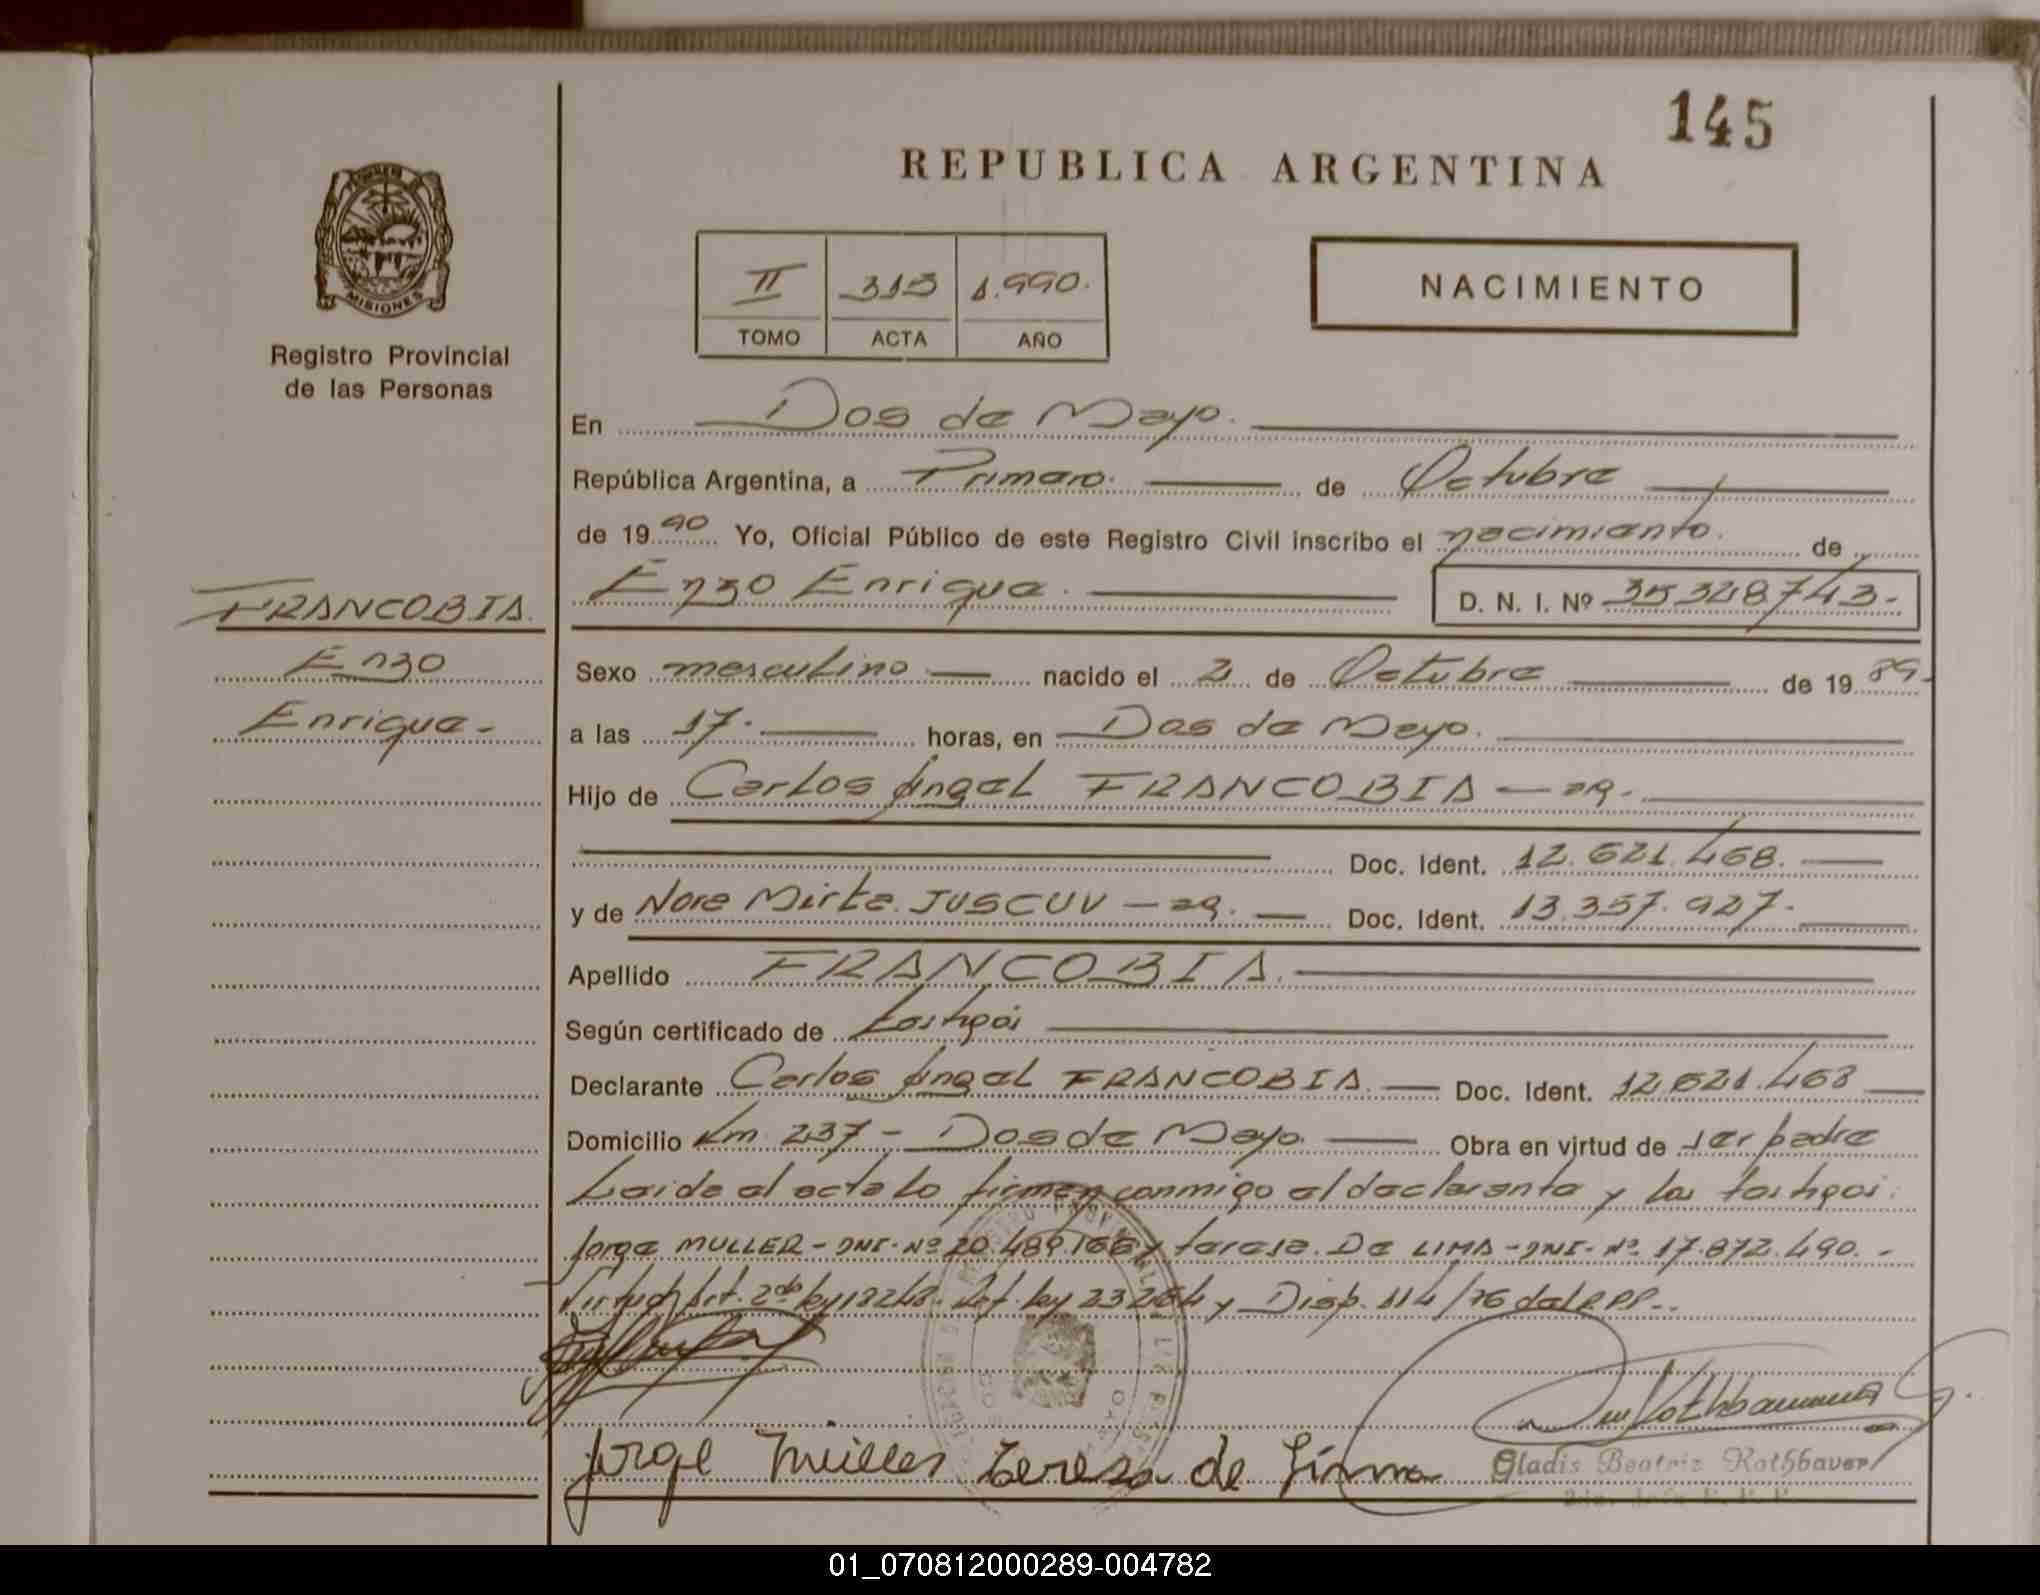 145
REPUBLICA ARGENTINA
MISIONES
Registro Provincial
de las Personas
II 313 1.990.
TOMO ACTA AÑO
NACIMIENTO
En Dos de Mayo.
República Argentina, a Primero. de Octubre
de 1990 Yo, Oficial Público de este Registro Civil inscribo el nacimiento. de
Enzo Enrique. D. N. I. Nº 35328743.-
FRANCOBIA.
Enzo
Enrique-
Sexo masculino nacido el 2 de Octubre de 1989-
a las 17. horas, en Dos de Mayo.
Hijo de Carlos Angel FRANCOBIA - ag.
Doc. Ident. 12.621.468.
y de Nora Mirta JUSCUV - ag. Doc. Ident. 13.357.927.
Apellido FRANCOBIA.
Según certificado de testigos
Declarante Carlos Angel FRANCOBIA. Doc. Ident. 12.621.468
Domicilio Km. 237 - Dos de Mayo. Obra en virtud de ser padre
Leida el acta lo firman conmigo el declarante y los testigos:
Jorge MULLER - DNI. Nº 20.489.166 y teresa. De LIMA - DNI. Nº 17.872.490.-
Virtud Art. 2do ley 18248. Ley 23264 y Disp. 114/76 del R.P.P..
Jorge Muller teresa de Lima
Gladis Beatriz Rothbauer
01_070812000289-004782